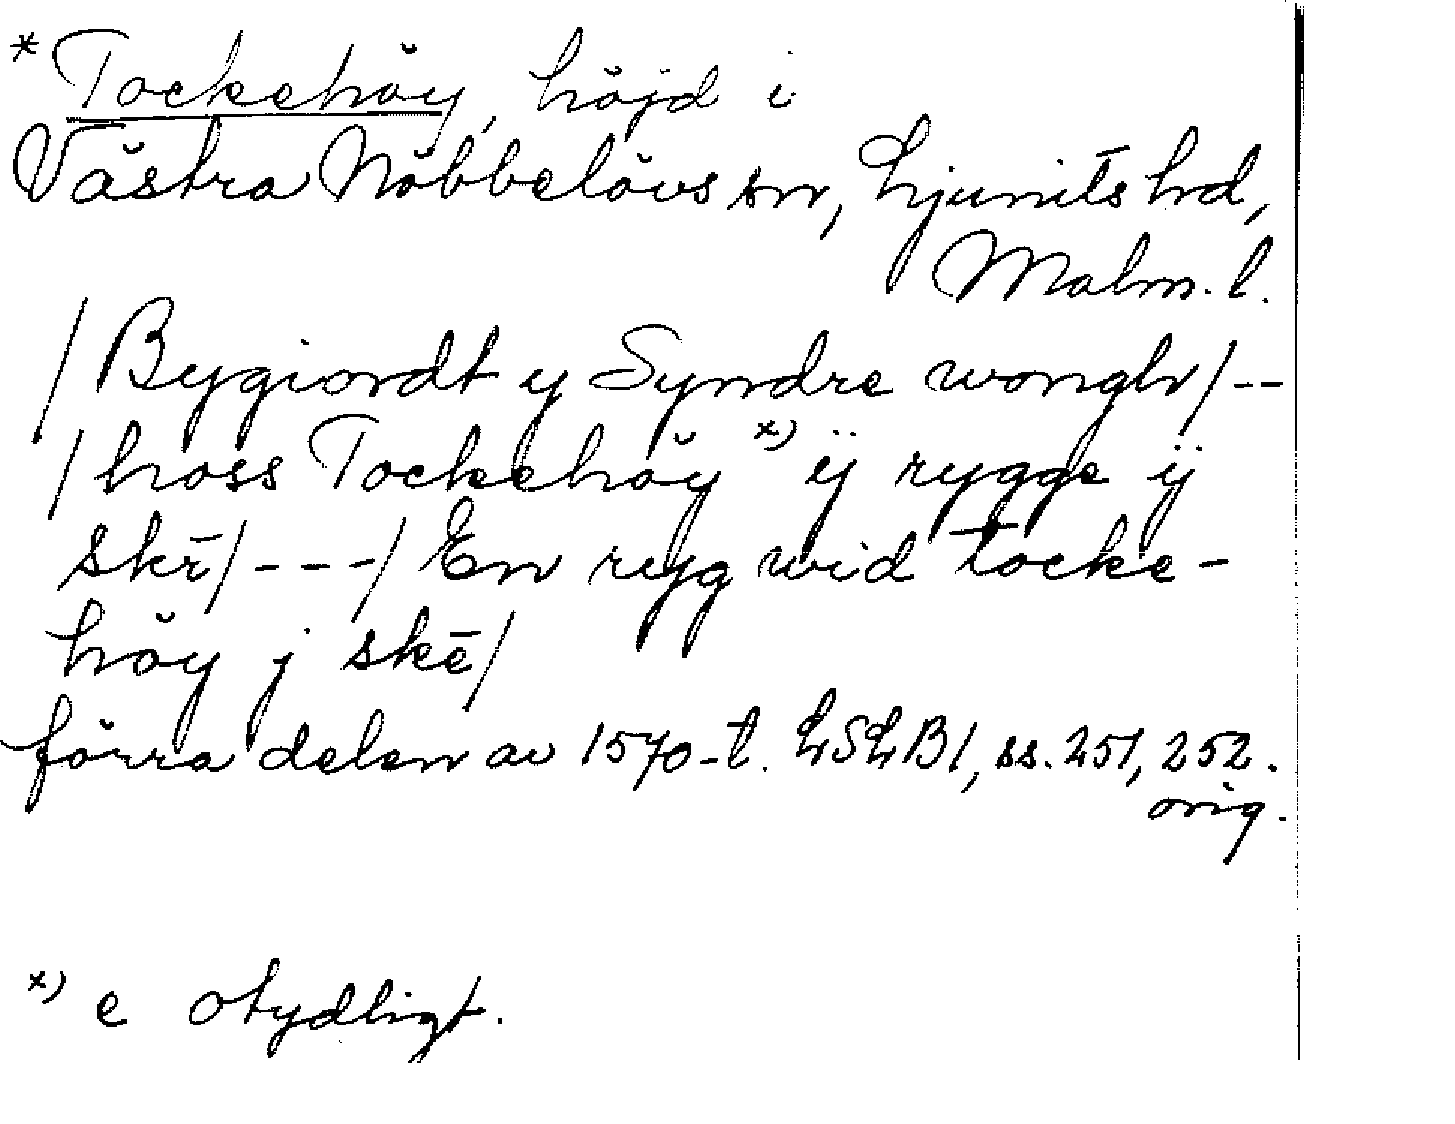 * Tockehöy, höjd i
Västra Nöbbelövs sn, Ljunits hd,
Malm. l.
/Bygiordt y Syndre wongh/--
/hoss Tockehöy x) ij rygge ij
skē/---/En ryg wid tocke-
höy j skē/
förra delen av 1570-t. LSLB1, ss. 251, 252.
orig.
x) e otydligt.